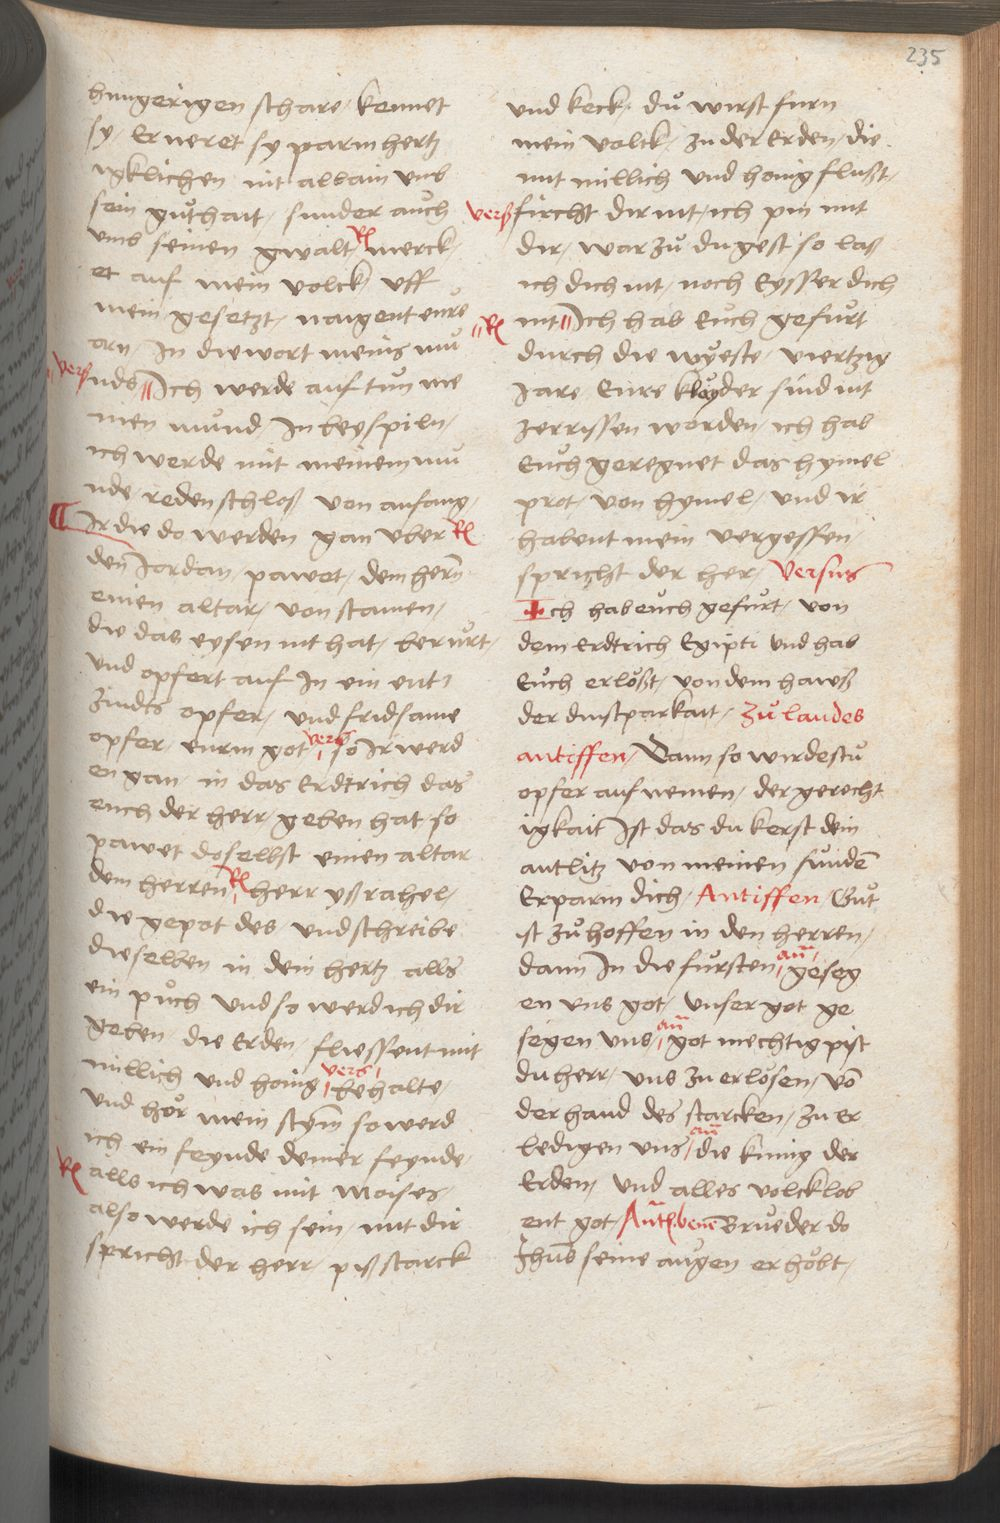 235
hungerigen schare / kennet
sy / Erneret sy parmhertz
igklichen nit allain umb
sein guͦthait / sunder auch
umb seinen gwalt / R merck /
et auf mein volck / uff
mein gesetzt / naigent eure
orn / In die wort meins mu
vers nds // Ich werde auf tun me
nen mund / In beyspiln /
ich werde mit meinem mu
nde / reden schloß von anfang /
Ir die do werden gan uber R
den Jordan / pawet / dem herrn
einen altar / von stainen /
die das eysen nit hat / beruͤrt /
und opfert auf In ein ent
zindts opfer / und fridsame
opfer / eurm got / vers so Ir werd
en gan / in das Erdtrich das
euch der herr / geben hat so
pawet doselbst einen altar
dem herren / R herr yßrahel /
die gepot des / und schreibe
dieselben in dein hertz alls
ein puͦch und so werd ich dir
geben / die Erden / fliessent mit
millich und honig / vers behalte /
und hoͤr mein stym̄ so werd
ich ein feynde deiner feynde /
R alls ich was mit Moises /
also werde ich sein / mit dir
spricht der herr / piß starck
und keck / du wirst furn
mein volck / zu der Erden / die
mit millich und honig flußt /
vers fircht dir nit / ich pin mit
dir / warzuͦ du gest so laß
ich dich nit / noch Eysser dich
R nit // Ich hab Euch gefuͤrt
durch die wyeste / viertzig
Jare / Eure kleyder sind nit
zerrissen worden / ich hab
Euch geregnet das hymel
prot / von hymel / und ir
habent mein vergessen /
spricht der her / Versus
Ich hab euch gefuͤrt / von
dem Erdtrich Egipti und hab
Euch erloͤßt / von dem hawß
der dinstparkait / Zuͦ laudes
antiffen / Dann so wirdestu
opfer auf nemen / der gerecht
igkait Ist das du kerst dein
antlitz von meinen sunden̄
Erparm dich / Antiffen / Guͦt
ist zuͦ hoffen in den herren /
dann In die fursten / an̄ geseg
en uns got / unser got ge
segen uns / an̄ got mechtig pist
du herr / uns zu erloͤsen / vō
der hand des starcken / zu er
ledigen uns / an̄ die kunig der
Erden / und alles volck lob
ent got / Ant bene Brueder do
Jhus seine augen erhoͤbt /